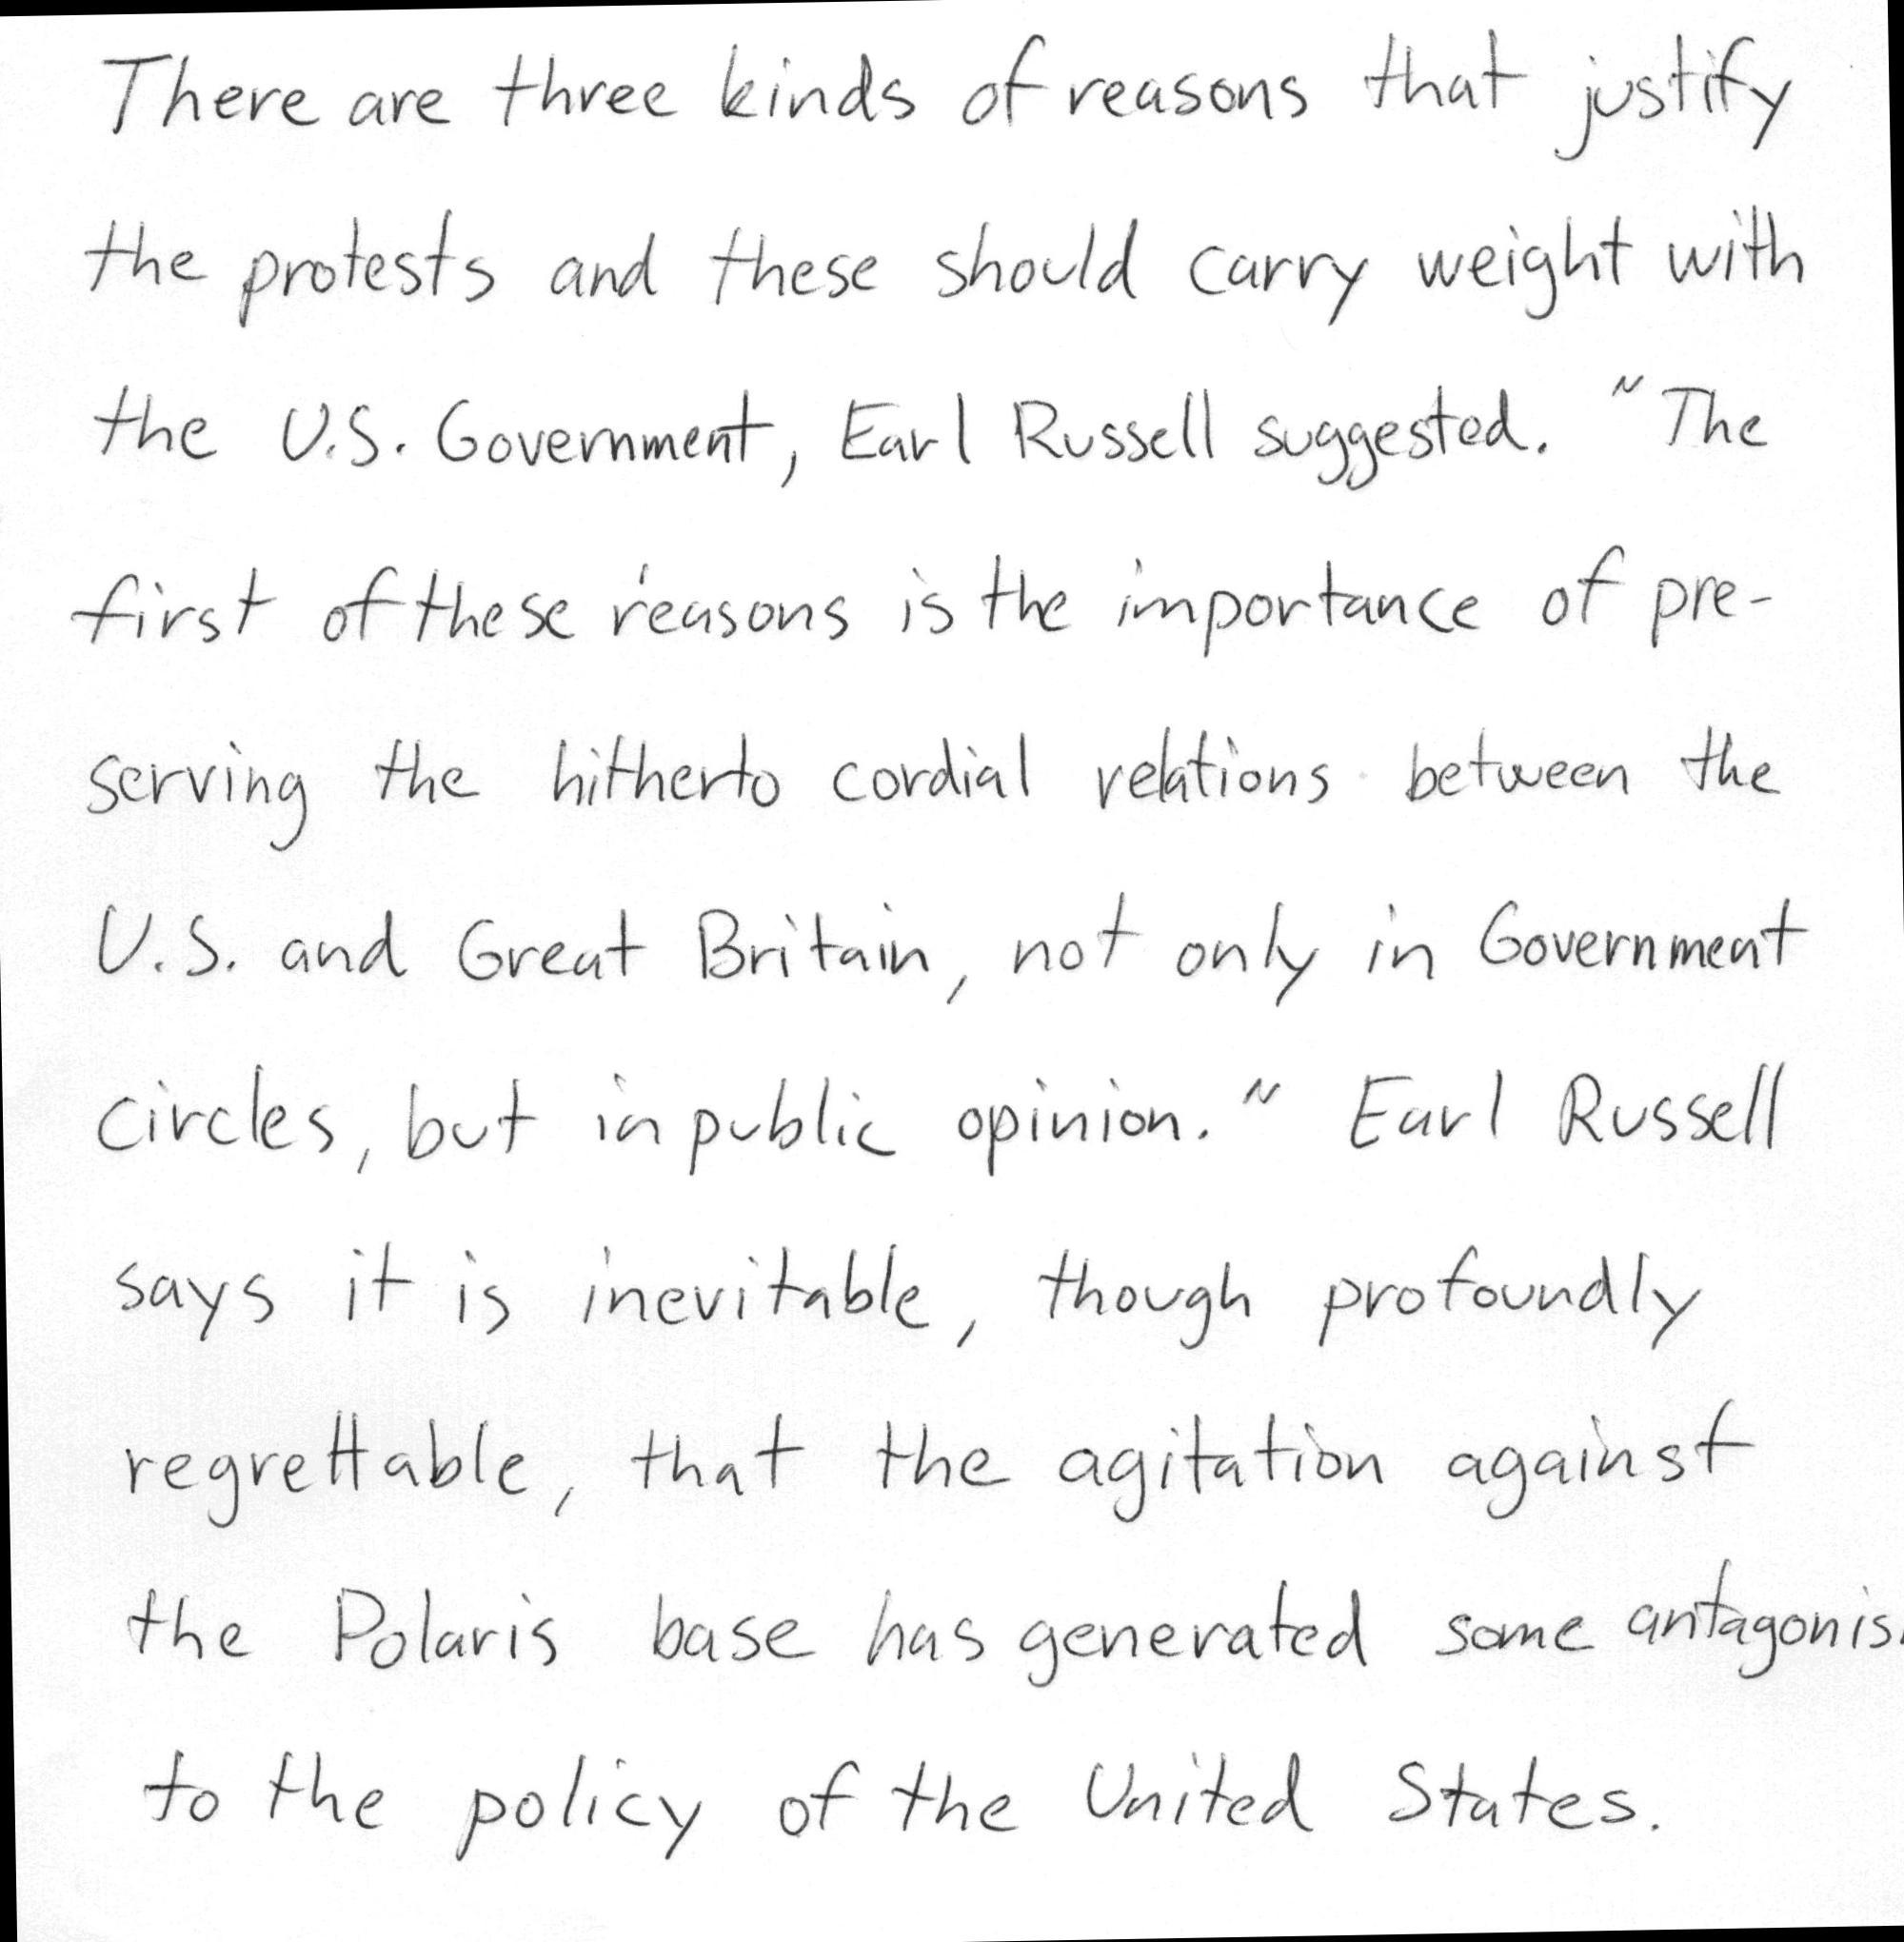 There are three kinds of reasons that justify
the protests and these should carry weight with
the U.S. Government, Earl Russell suggested. "The
first of these reasons is the importance of pre-
serving the hitherto cordial relations between the
U.S. and Great Britain, not only in Government
circles, but in public opinion." Earl Russell
says it is inevitable, though profoundly
regrettable, that the agitation against
the Polaris base has generated some antagonis
to the policy of the United States.